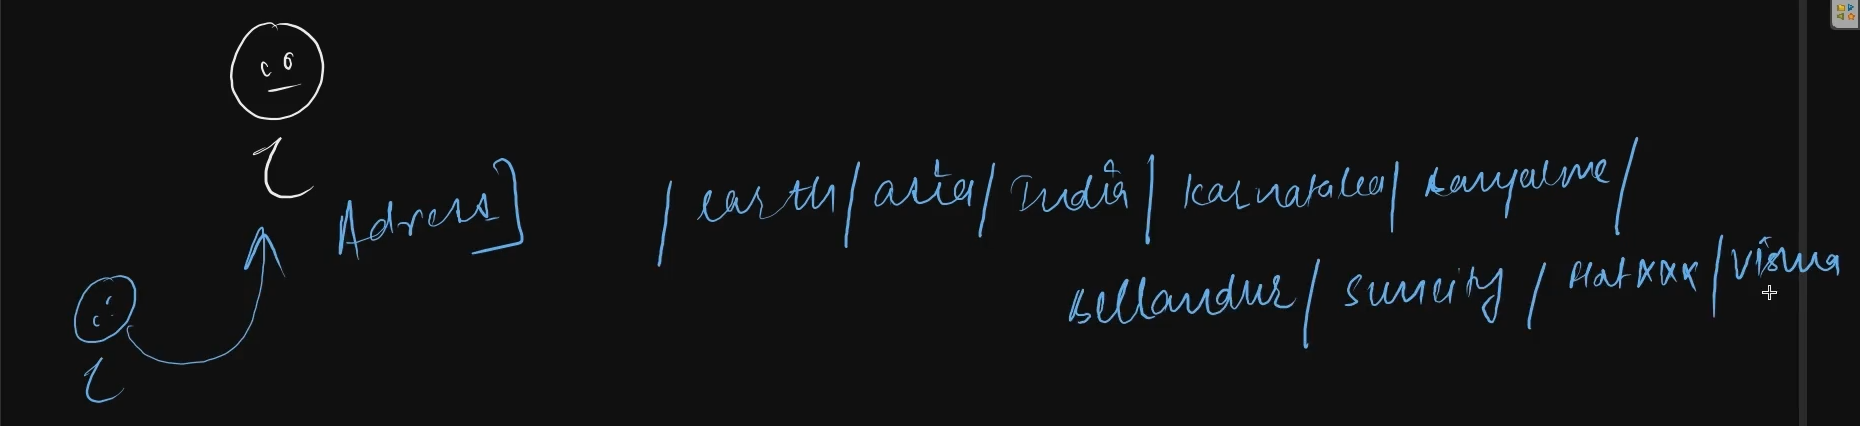 Adress] /earth/asia/India/Karnataka/
Bellandur/suncity/Flatxxx/Vishwa